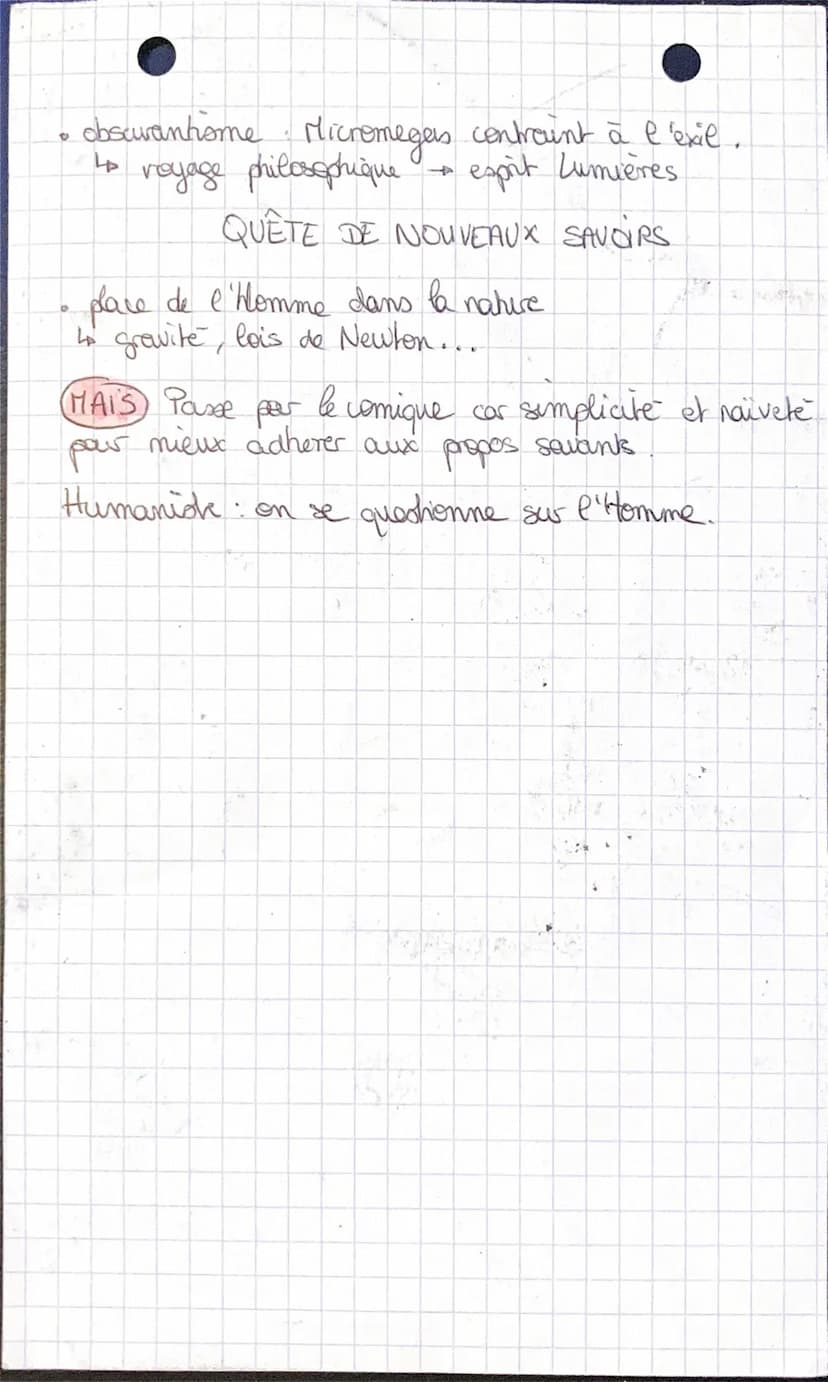 • obscurantisme : Micromegas contraint à l'exil.
↳ voyage philosophique → esprit Lumières
QUÊTE DE NOUVEAUX SAVOIRS
• place de l'Homme dans la nature
↳ gravité, lois de Newton...
MAIS Passe par le comique car simplicité et naïveté
pour mieux adherer aux propos savants.
Humaniste : on se questionne sur l'Homme.